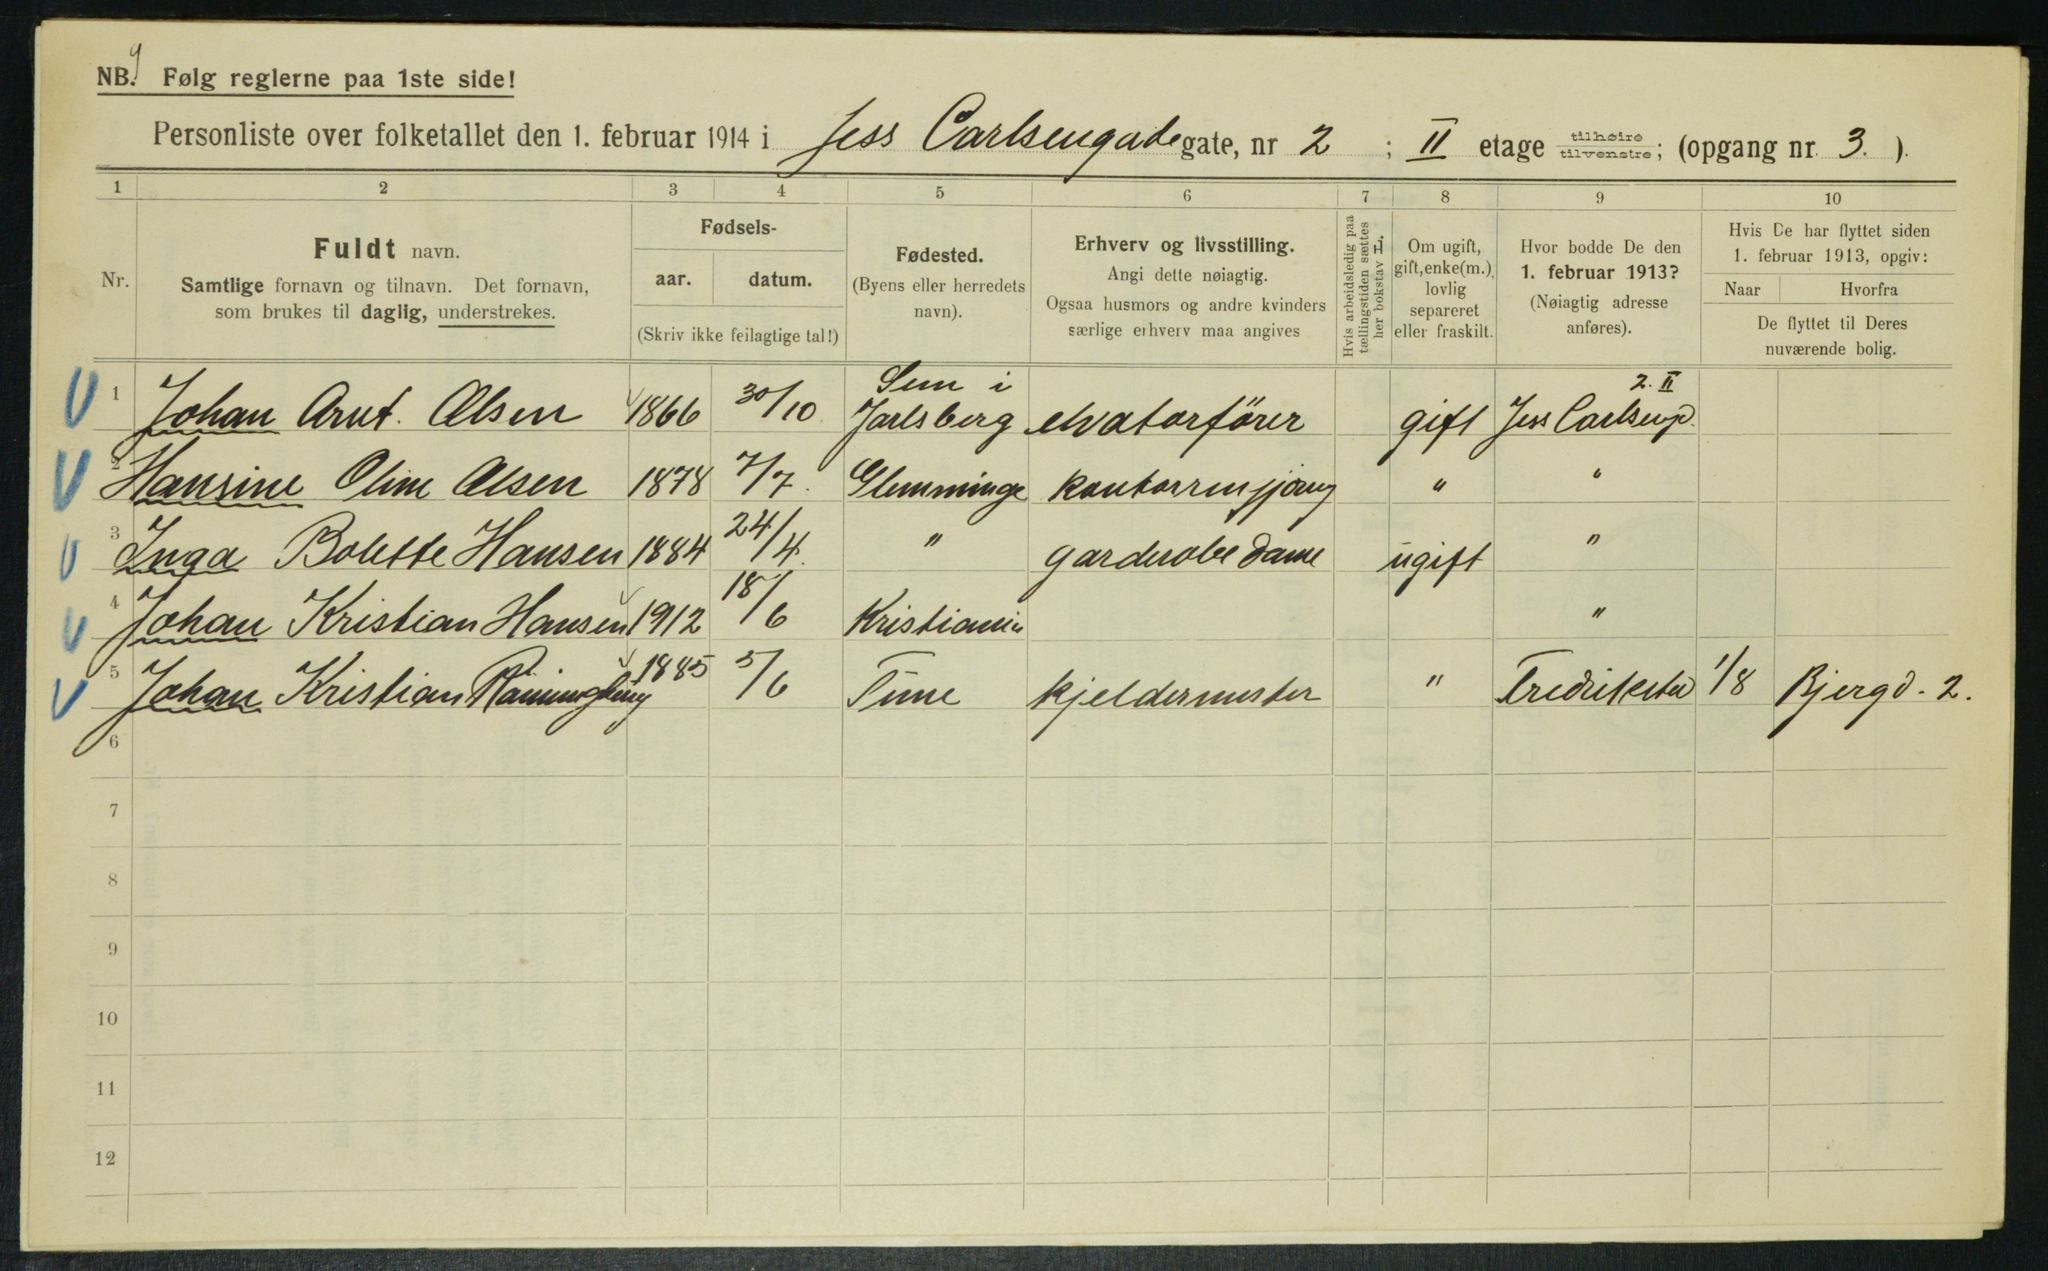 NB. Følg reglerne paa 1ste side!
Personliste over folketallet den 1. februar 1914 i Jess Carlsengade gate, nr 2 ; II etage tilhøire/tilvenstre; (opgang nr 3. ).
1 2 3 4 5 6 7 8 9 10
Nr.
Fuldt navn.
Samtlige fornavn og tilnavn. Det fornavn,
som brukes til daglig, understrekes.
Fødsels-
aar. datum.
(Skriv ikke feilagtige tal!)
Fødested.
(Byens eller herredets
navn).
Erhverv og livsstilling.
Angi dette nøiagtig.
Ogsaa husmors og andre kvinders
særlige erhverv maa angives
Hvis arbeidsledig paa
tællingstiden sættes
her bokstav L.
Om ugift,
gift, enke(m.),
lovlig
separeret
eller fraskilt.
Hvor bodde De den
1. februar 1913?
(Nøiagtig adresse
anføres).
Hvis De har flyttet siden
1. februar 1913, opgiv:
Naar Hvorfra
De flyttet til Deres
nuværende bolig.
1 Johan Arnt. Olsen 1866 30/10. Sem i Jarlsberg elvatorfører gift Jess Carlseng. 2. II
2 Hansine Oline Olsen 1878 7/7. Glemminge kontorrengjøring " "
3 Inga Bolette Hansen 1884 24/4. " garderobe dame ugift "
4 Johan Kristian Hansen 1912 18/6 Kristiania "
5 Johan Kristian 1885 5/6 Time kjeldermester " Fredrikstad 1/8 Bjergd. 2.
6
7
8
9
10
11
12